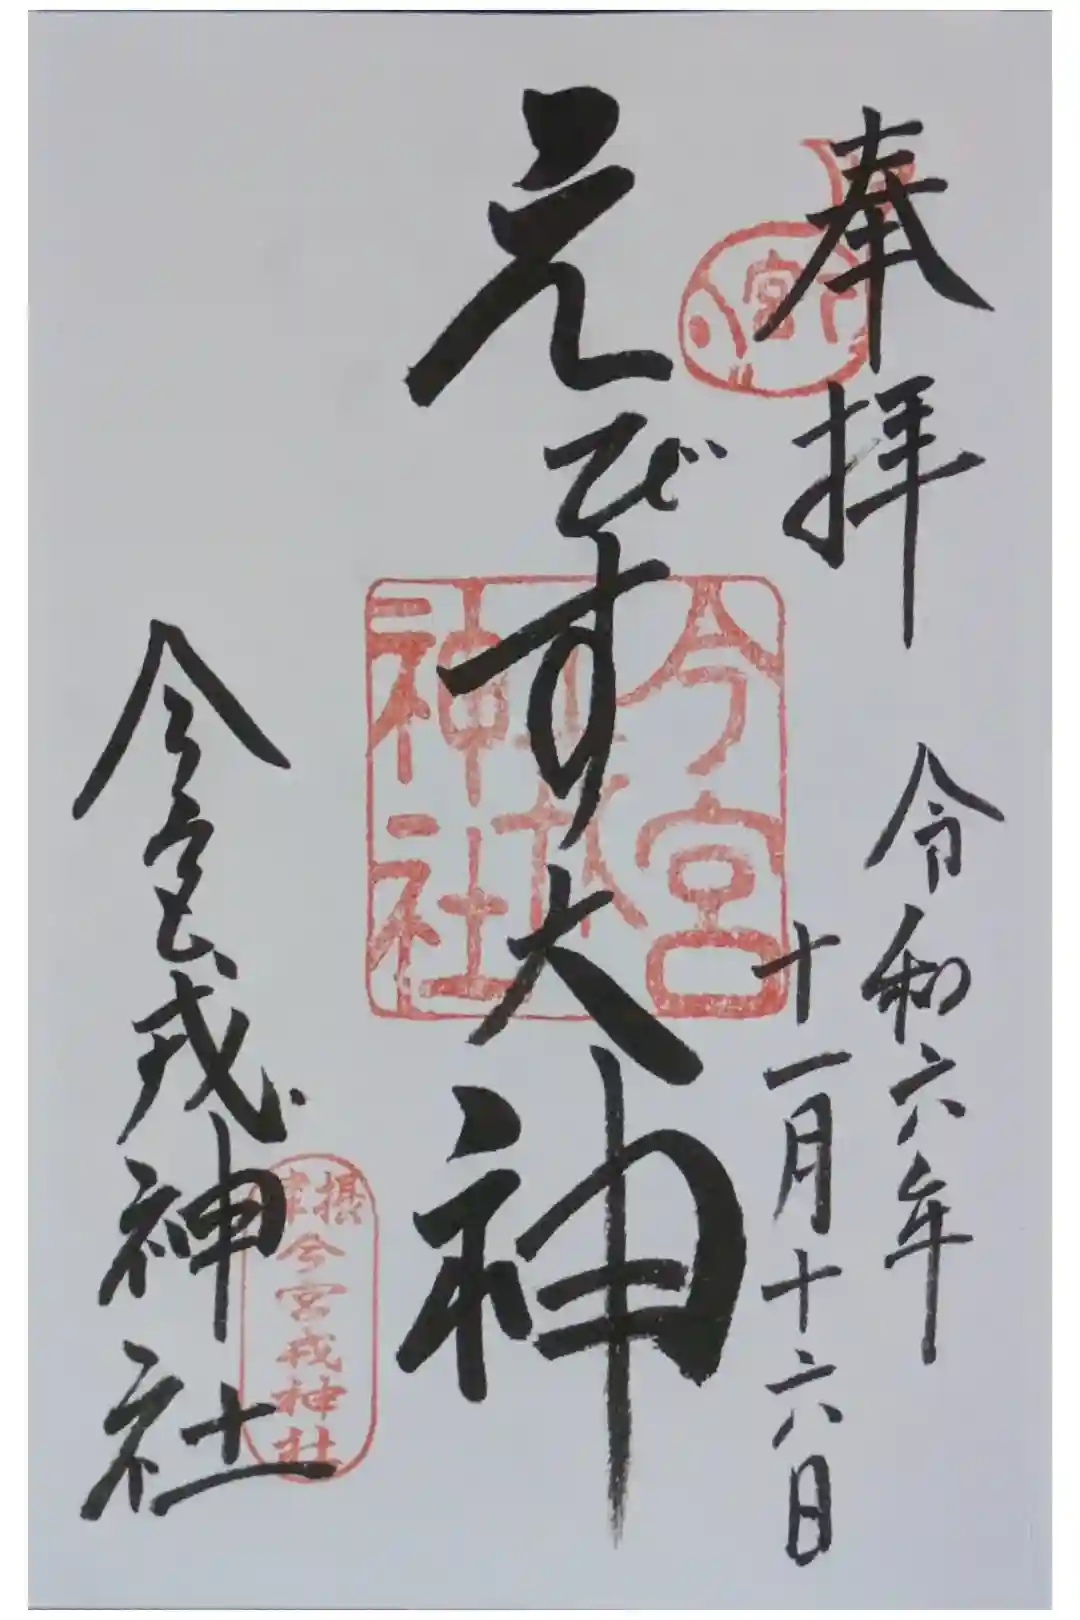 奉拝
令和六年
十一月十六日
えびす大神
今宮戎神社
今宮
神社
摂津
今宮戎神社